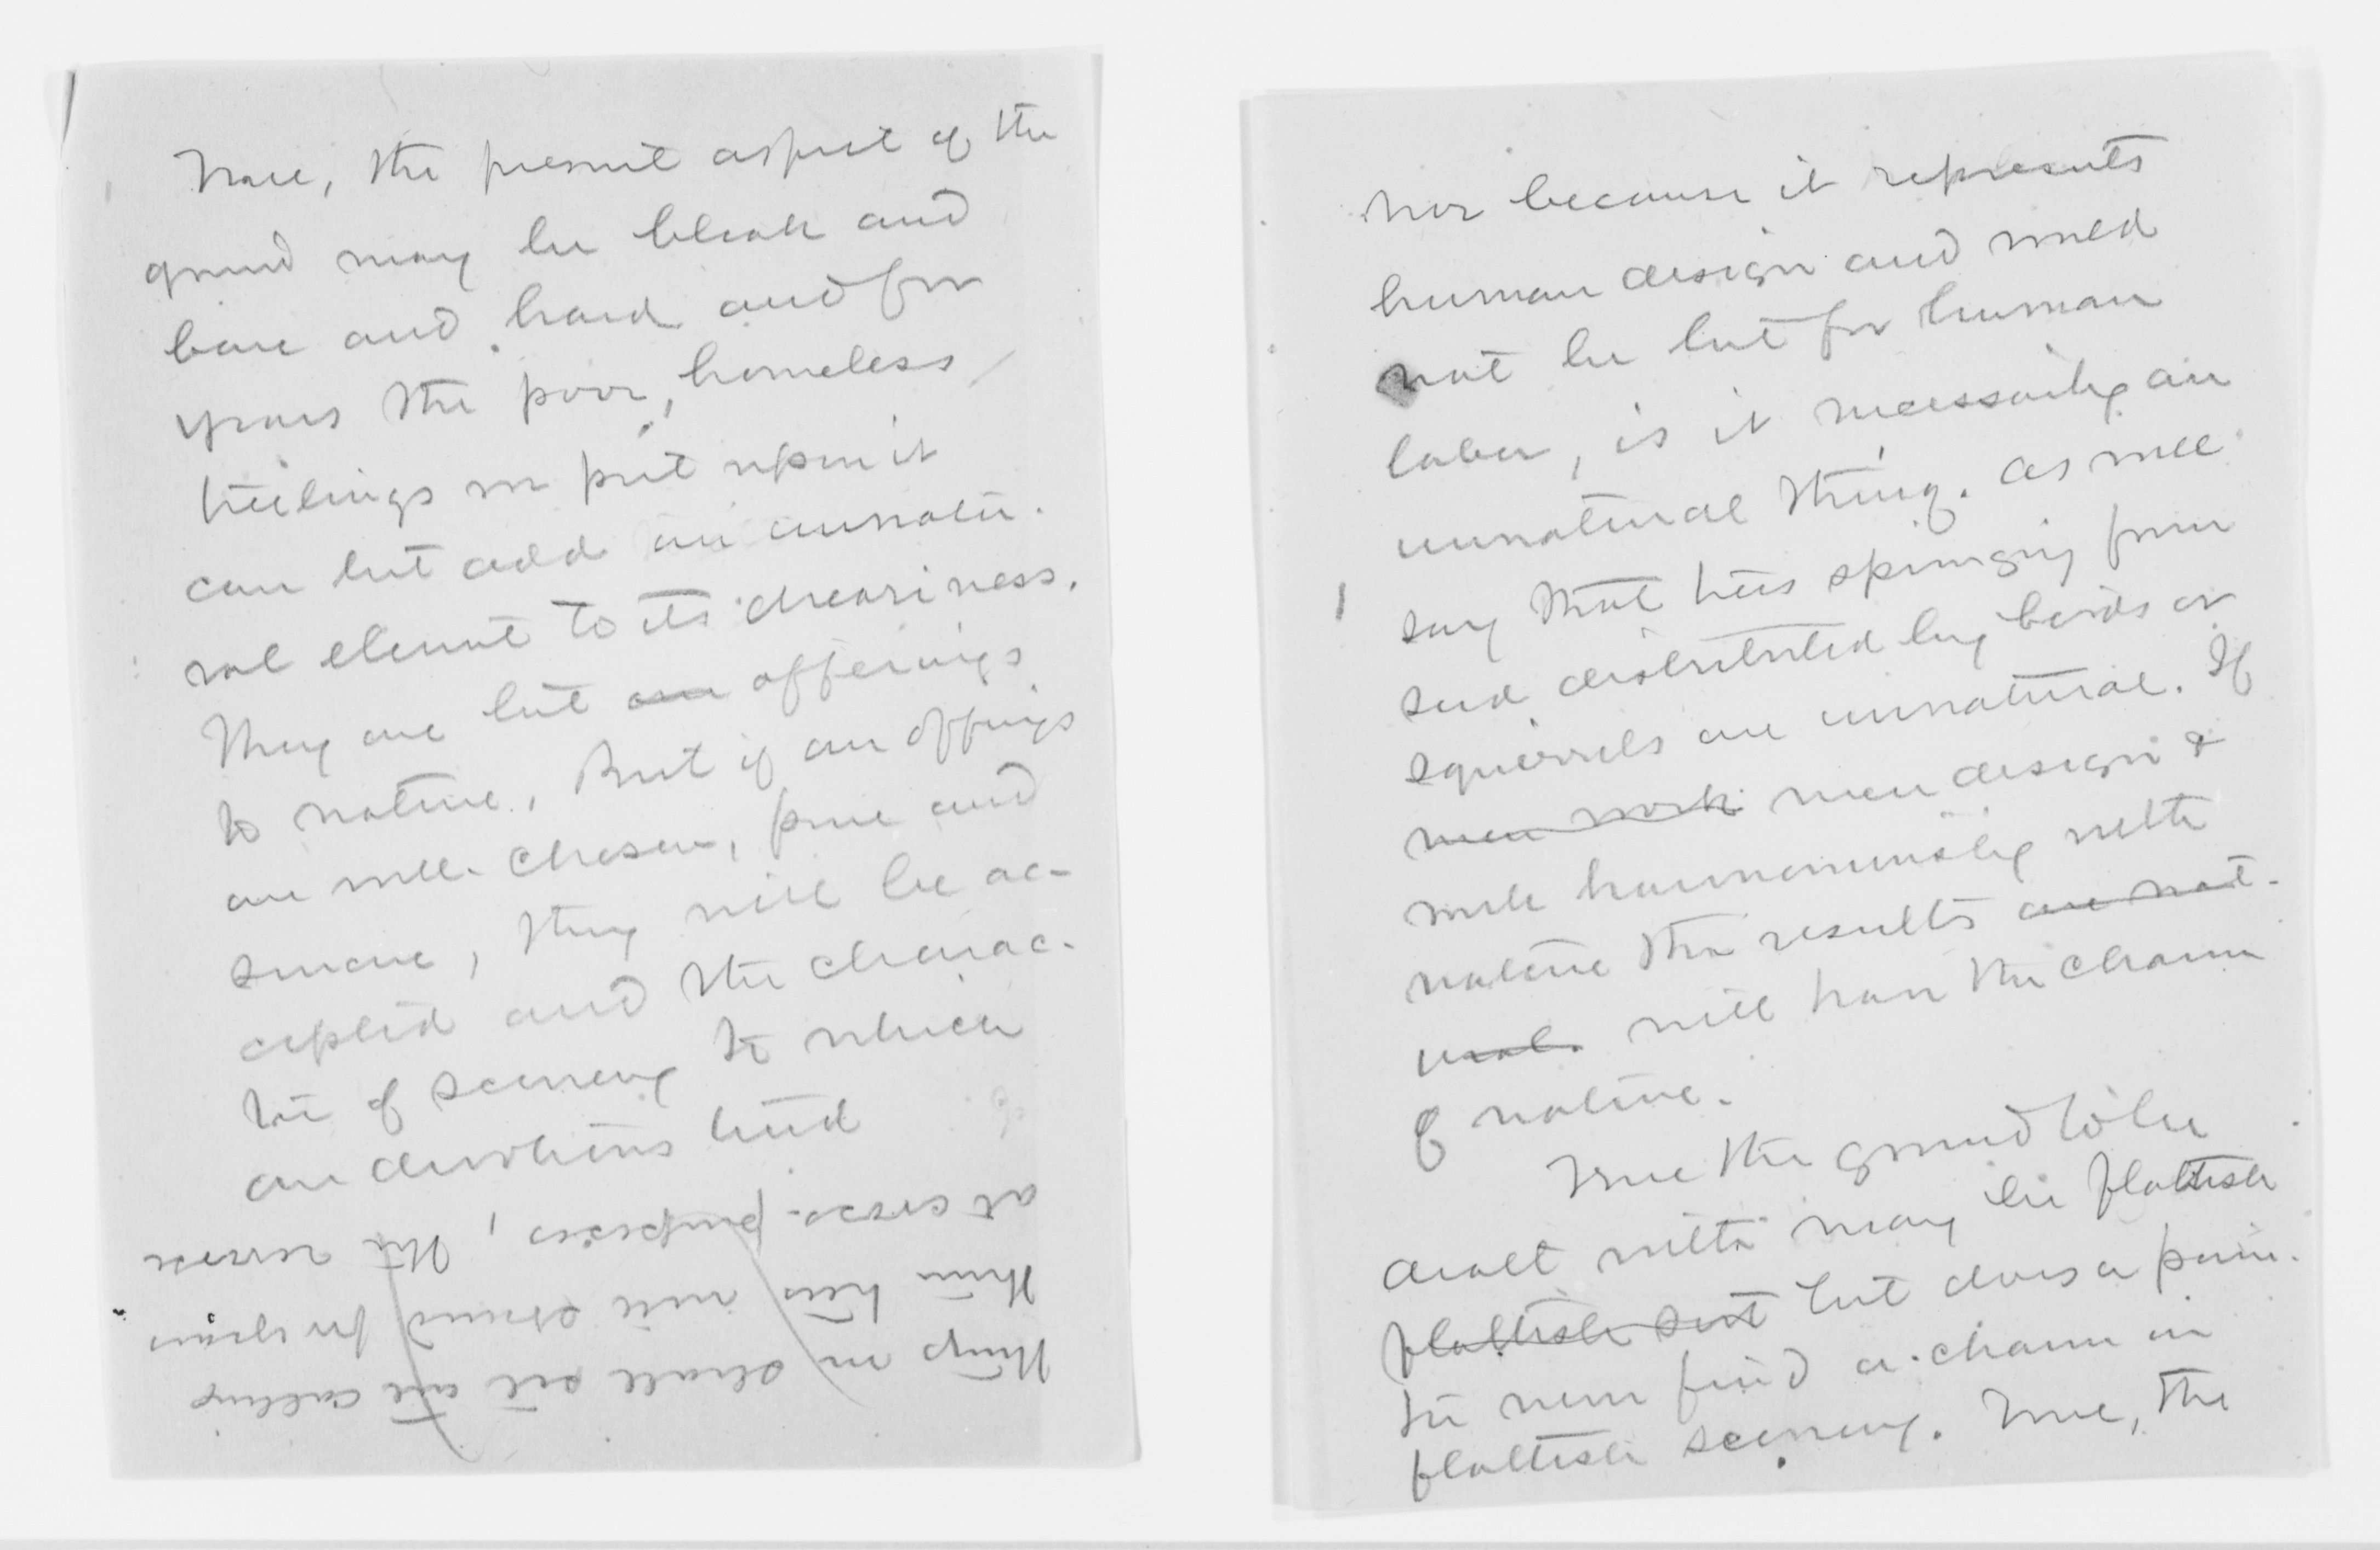 Now, the present aspect of the
ground may be bleak and
bare and hard and for
years the poor, homeless
treelings we put upon it
can but add an unnatu-
ral element to its dreariness.
They are but our offerings
to nature. But if our offerings
are well chosen, pure and
sincere, they will be ac-
cepted and the charac-
ter of scenery to which
our devotions tend
things we shall set at calling
them trees will stand for years
at cross-purposes, the reverse
Nor because it represents
human design and would
not be but for human
labor, is it necessarily an
unnatural thing. As well
say that trees springing from
seed distributed by birds or
squirrels are unnatural. If
men work men design &
work harmoniously with
nature the results are nat-
ural. will have the charm
of nature.
True the ground to be
dealt with may be flattish
flattish but does a pain-
ter never find a charm in
flattish scenery. True, the